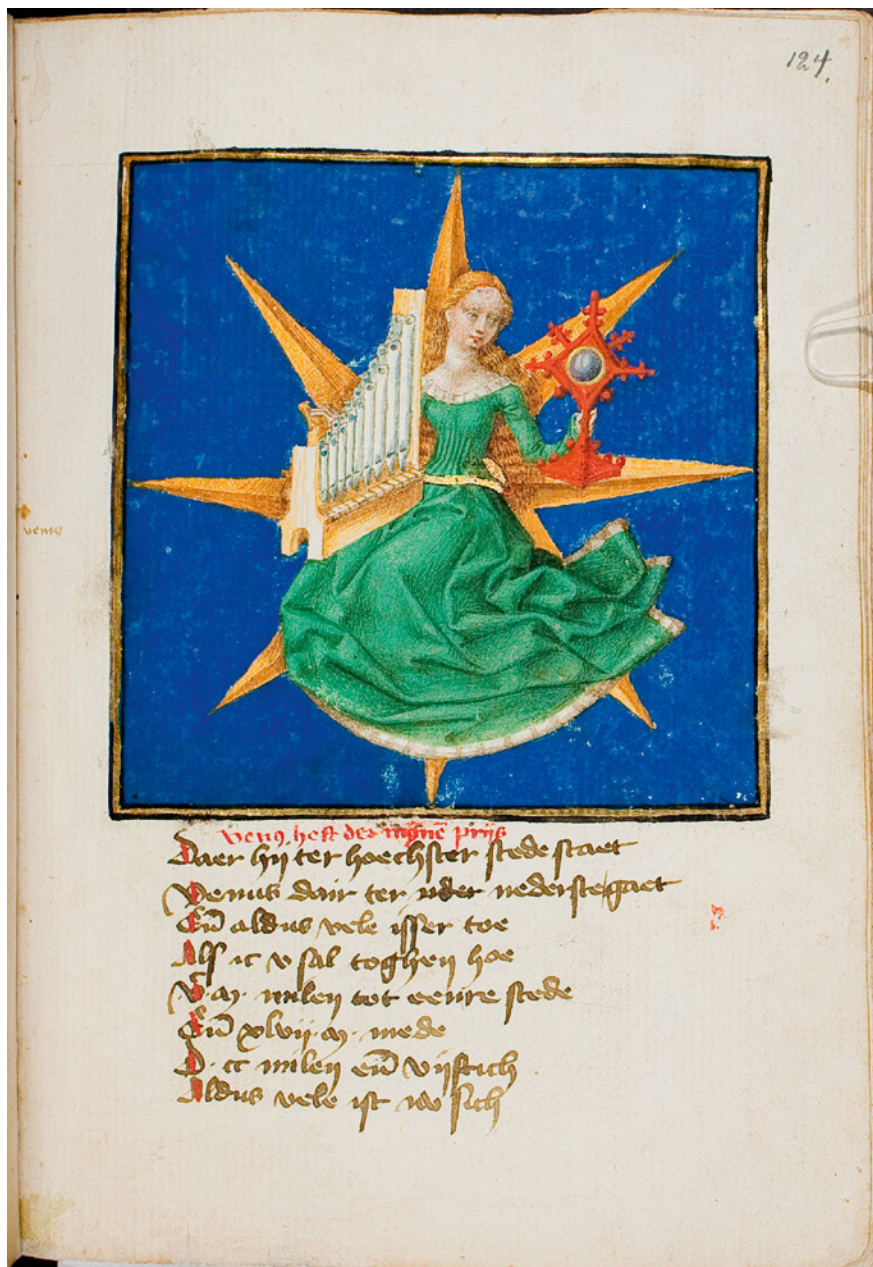 124.
venus
venus heft der mīnē prijs
Daer hij ter hoechster stede staet
Venus dair ter neder nederste gaet
Eñ aldus vele isser toe
Als ic v sal toghen hoe
V. m. milen tot eenre stede
Eñ xlvij. m. mede
D. cc milen eñ vijftich
Aldus vele ist